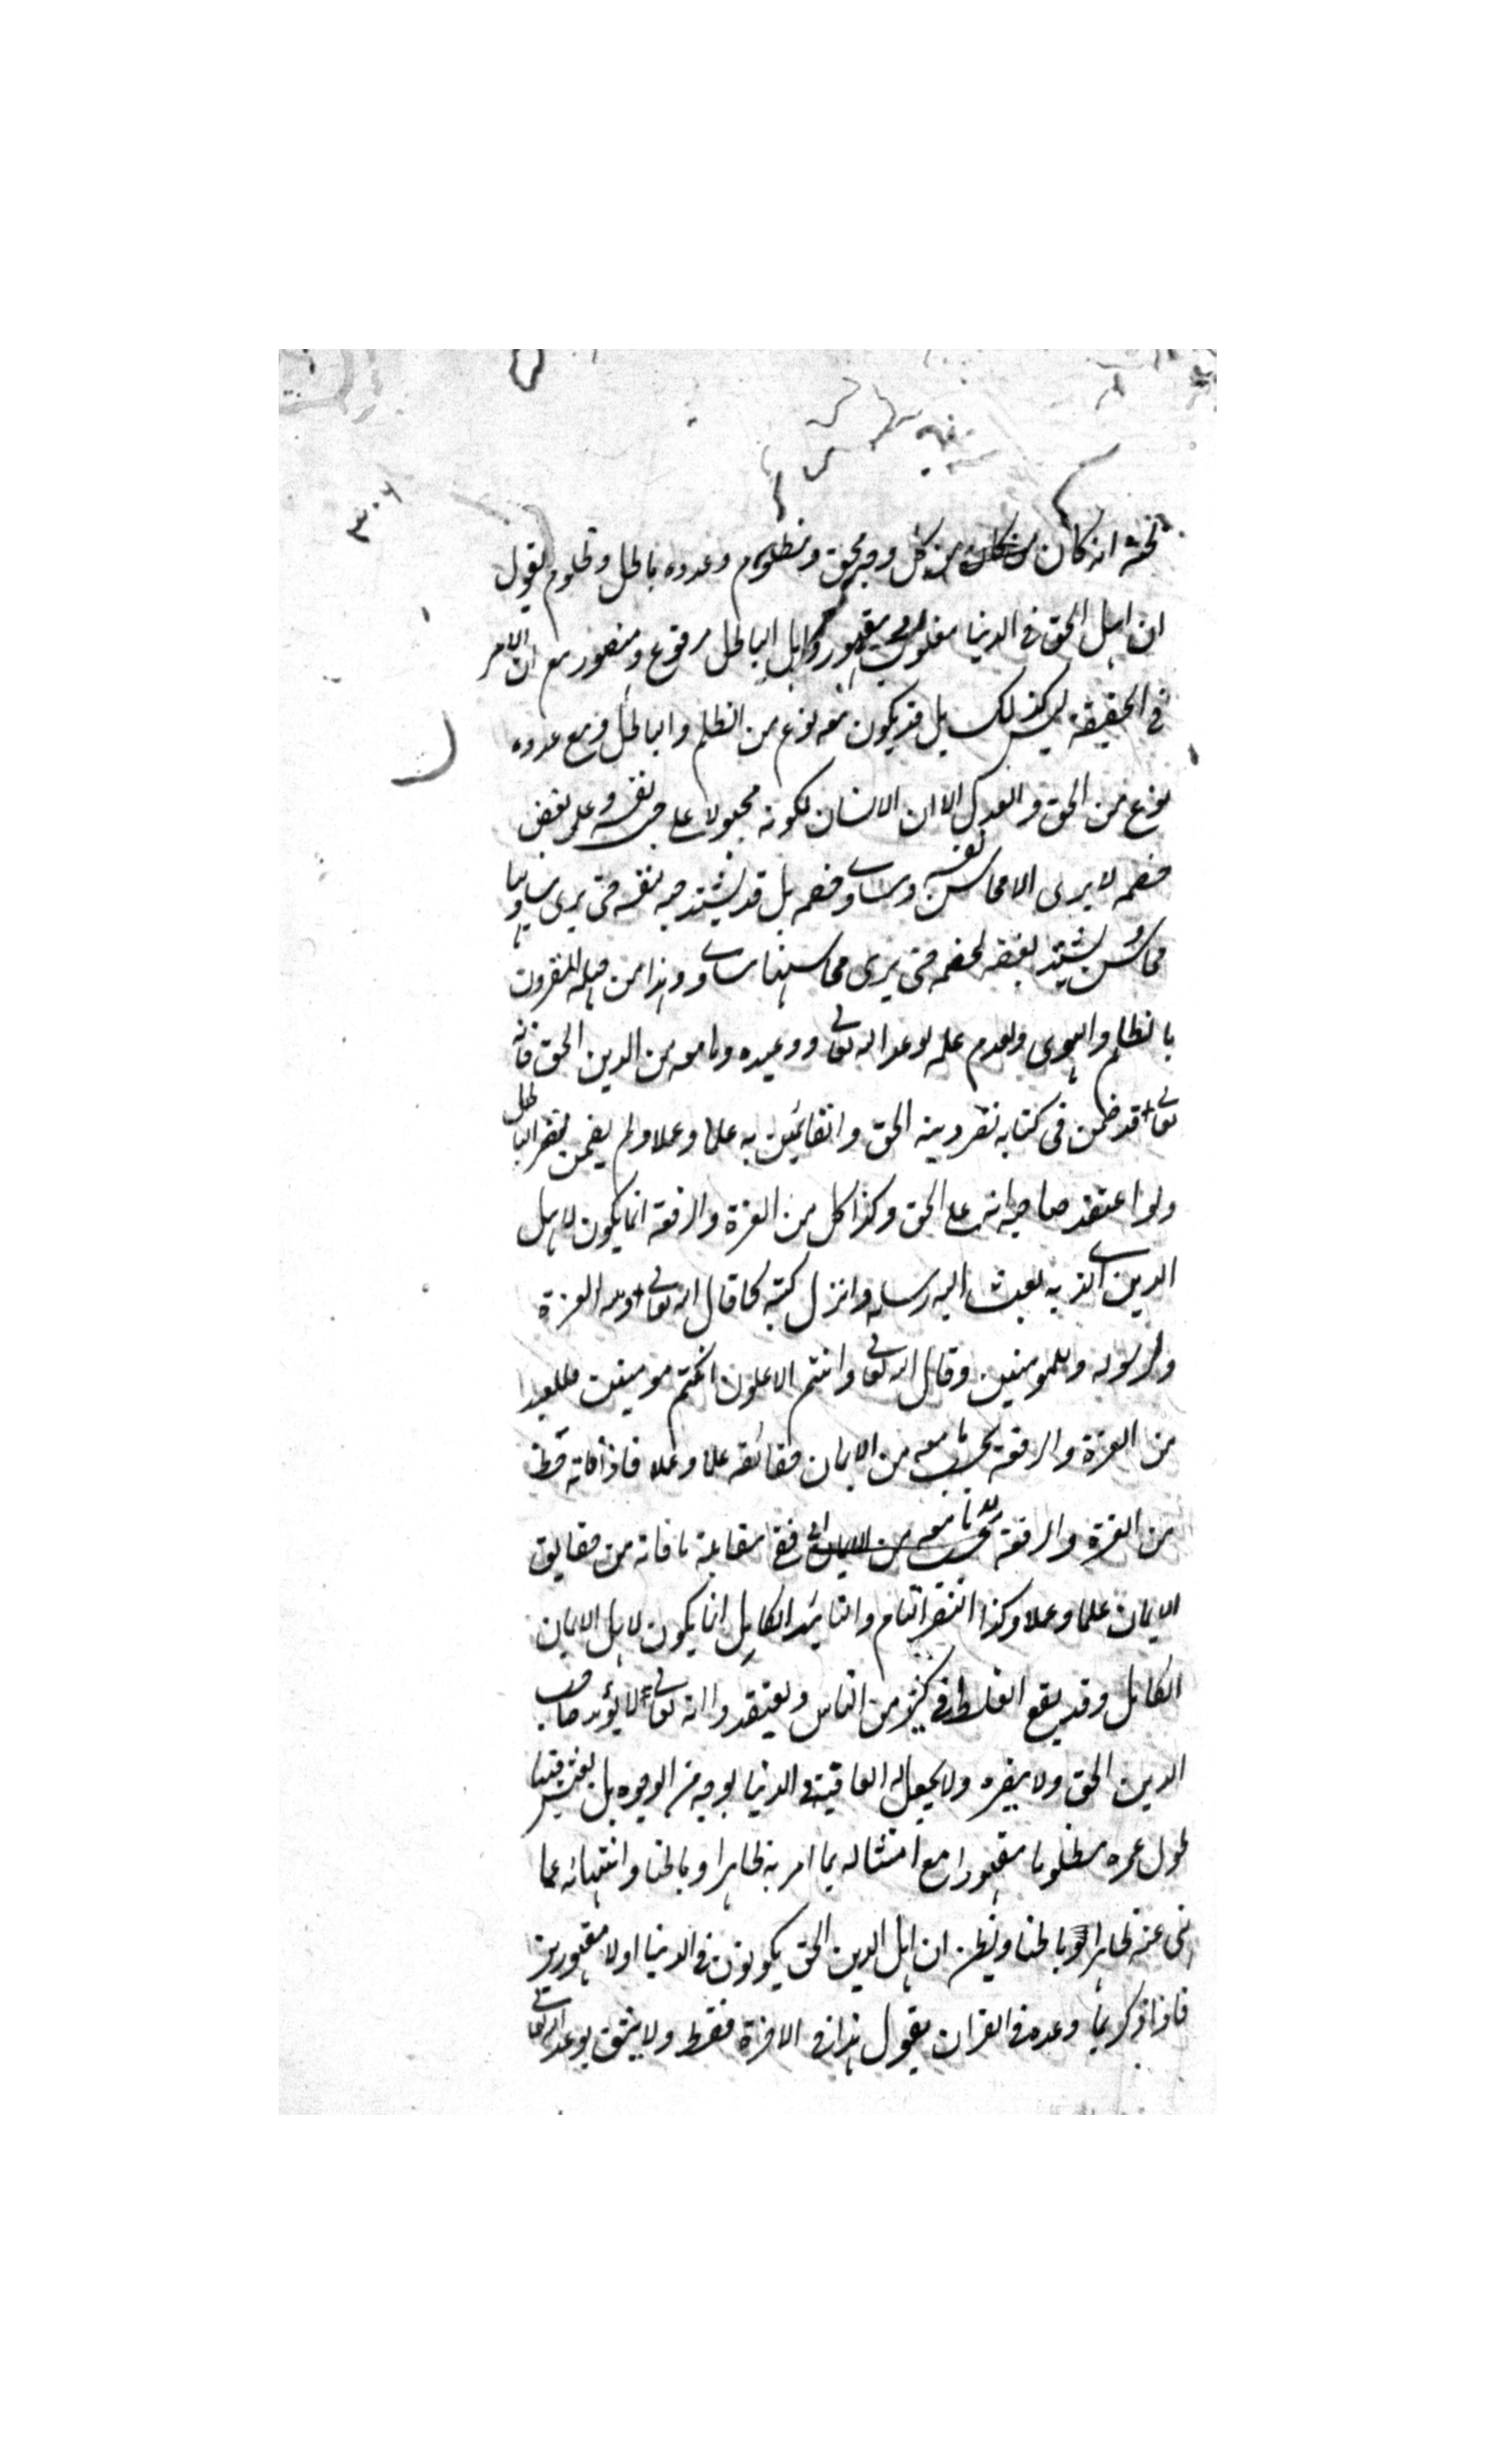 ٣٠٦
انه كان من كل وجه محق ومظلوم وعدوه باطل وظلوم يقول
ان اهل الحق في الدنيا مغلوب مقهور واهل الباطل مرفوع ومنصور مع ان الامر
في الحقيقة ليس كذلك بل قد يكون معه نوع من الظلم والباطل ومع عدوه
نوع من الحق والعدل الا ان الانسان لكونه مجبولا على حب نفسه وعلى بغض
خصمه لا يرى الا محاسن نفسه ومساوي خصمه بل قد يشتد حبه نفسه حتى يرى مساويها
محاسن ويشتد بغضه لخصمه حتى يرى محاسنها مساوي وهذا من جهله المقرون
بالظلم والهوى ولعدم علمه لوعد الله تعالى ووعيده وما معه من الدين الحق فانه
تعالى قد ضمن في كتابه نصر دينه الحق والقائمين به علما وعملا ولم يضمن نصر الباطل
ولو اعتقد صاحبه انه على الحق وكذا كل من العزة والرفعة انما يكون لاهل
الدين الذي به بعث اليه رسله وانزل كتبه كما قال الله تعالى ولله العزة
ولرسوله وللمومنين وقال الله تعالى وانتم الاعلون ان كنتم مومنين فللعبد
من العزة والرفعة بحسب ما معه من الايمان حقائقه علما وعملا فاذا فاته حظ
من العزة والرفعة ففي مقابلة ما فاته من حقايق
الايمان علما وعملا وكذا النصر التام والتائيد الكامل انما يكون لاهل الايمان
الكامل وقد يقع الغلط في كثير من الناس ويعتقدوا انه تعالى لا يؤيد صاحب
الدين الحق ولا ينصره ولا يجعل له العاقبة في الدنيا بوجه من الوجوه بل يعيش فيها
طول عمره مظلوما مقهورا مع امتثاله بما امر به ظاهرا وباطنا وانتهائه عما
نهى عنه ظاهرا وباطنا ويظن ان اهل الدين الحق يكونون في الدنيا اولا مقهورين
فاذا ذكر بما وعده في القران يقول هذا في الاخرة فقط ولا يثق بوعد الله تعالى